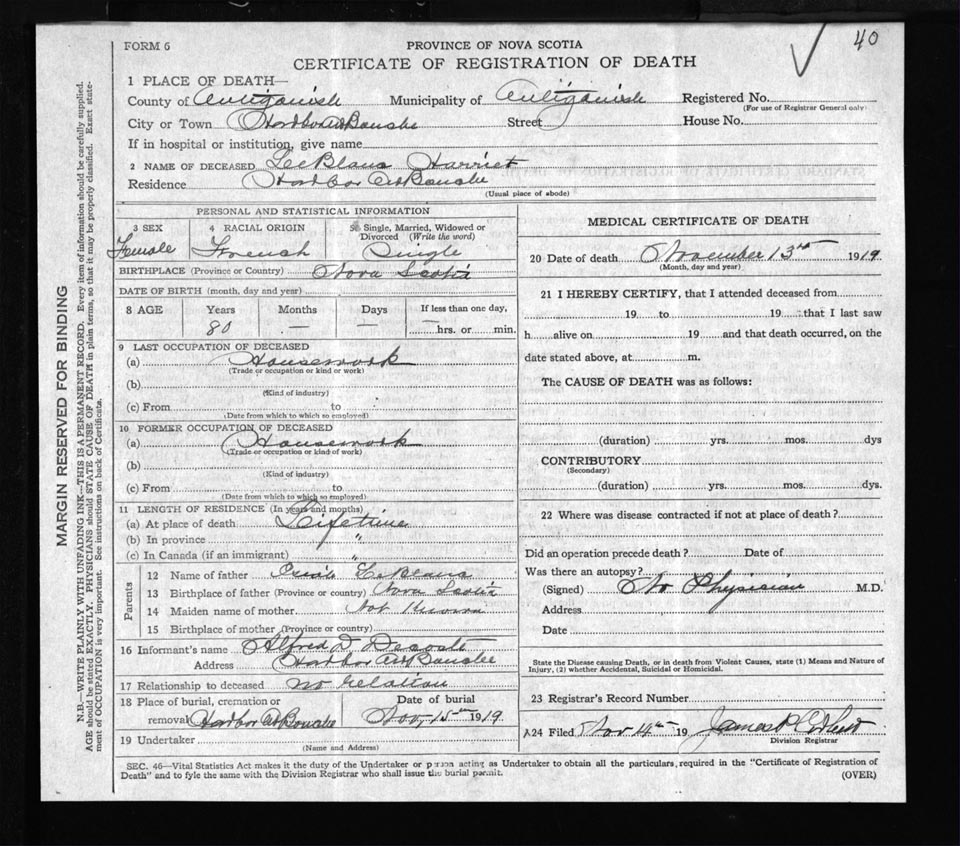 FORM 6
PROVINCE OF NOVA SCOTIA
40
CERTIFICATE OF REGISTRATION OF DEATH
1 PLACE OF DEATH—
County of Antigonish Municipality of Antigonish Registered No.
(For use of Registrar General only)
City or Town Harbor Au Bouche Street House No.
If in hospital or institution, give name
2 NAME OF DECEASED LeBlanc Harriet
Residence Harbor Au Bouche
(Usual place of abode)
PERSONAL AND STATISTICAL INFORMATION
3 SEX 4 RACIAL ORIGIN 5 Single, Married, Widowed or Divorced (Write the word)
Female French Single
BIRTHPLACE (Province or Country) Nova Scotia
DATE OF BIRTH (month, day and year)
8 AGE Years Months Days If less than one day,
80 — — hrs. or min.
9 LAST OCCUPATION OF DECEASED
(a) Housework
(Trade or occupation or kind or work)
(b)
(Kind of industry)
(c) From to
(Date from which to which so employed)
10 FORMER OCCUPATION OF DECEASED
(a) Housework
(Trade or occupation or kind of work)
(b)
(Kind of industry)
(c) From to
(Date from which to which so employed)
11 LENGTH OF RESIDENCE (In years and months)
(a) At place of death Lifetime
(b) In province "
(c) In Canada (if an immigrant) "
Parents
12 Name of father LeBlanc
13 Birthplace of father (Province or country) Nova Scotia
14 Maiden name of mother Not Known
15 Birthplace of mother (Province or country)
16 Informant's name Alfred D.
Address Harbor Au Bouche
17 Relationship to deceased no relation
18 Place of burial, cremation or Date of burial
removal Harbor Au Bouche Nov. 15th 1919
19 Undertaker
(Name and Address)
MEDICAL CERTIFICATE OF DEATH
20 Date of death November 13rd 1919.
(Month, day and year)
21 I HEREBY CERTIFY, that I attended deceased from
19 to 19 that I last saw
h alive on 19 and that death occurred, on the
date stated above, at m.
The CAUSE OF DEATH was as follows:
(duration) yrs. mos. dys
CONTRIBUTORY
(Secondary)
(duration) yrs. mos. dys.
22 Where was disease contracted if not at place of death?
Did an operation precede death? Date of
Was there an autopsy?
(Signed) No Physician M.D.
Address
Date
State the Disease causing Death, or in death from Violent Causes, state (1) Means and Nature of
Injury, (2) whether Accidental, Suicidal or Homicidal.
23 Registrar's Record Number
24 Filed Nov 14th 19 James P
Division Registrar
SEC. 46—Vital Statistics Act makes it the duty of the Undertaker or person acting as Undertaker to obtain all the particulars, required in the "Certificate of Registration of
Death" and to fyle the same with the Division Registrar who shall issue the burial permit.
(OVER)
MARGIN RESERVED FOR BINDING
N.B.—WRITE PLAINLY WITH UNFADING INK—THIS IS A PERMANENT RECORD. Every item of information should be carefully supplied.
AGE should be stated EXACTLY. PHYSICIANS should STATE CAUSE OF DEATH in plain terms, so that it may be properly classified. Exact state-
ment of OCCUPATION is very important. See instructions on back of Certificate.